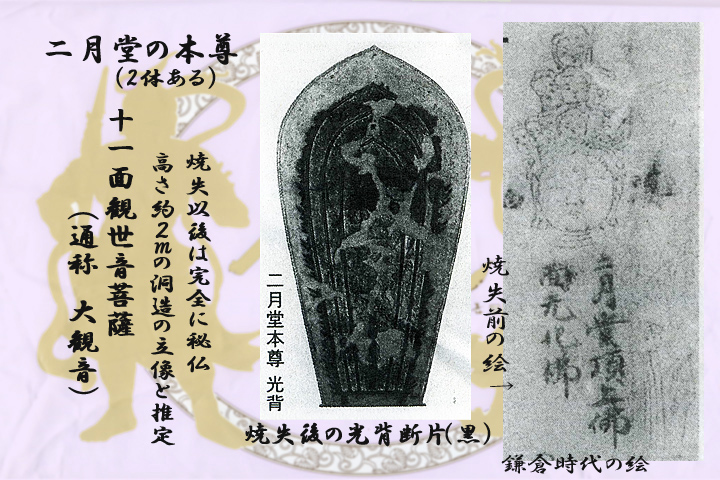 二月堂の本尊
(2体ある)
十一面觀世音菩薩
(通称 大観音)
焼失以後は完全に秘仏
高さ約2mの洞造の立像と推定
二月堂本尊 光背
焼失後の光背断片(黒)
焼失前の絵→
二月堂頂上佛
鎌倉時代の絵